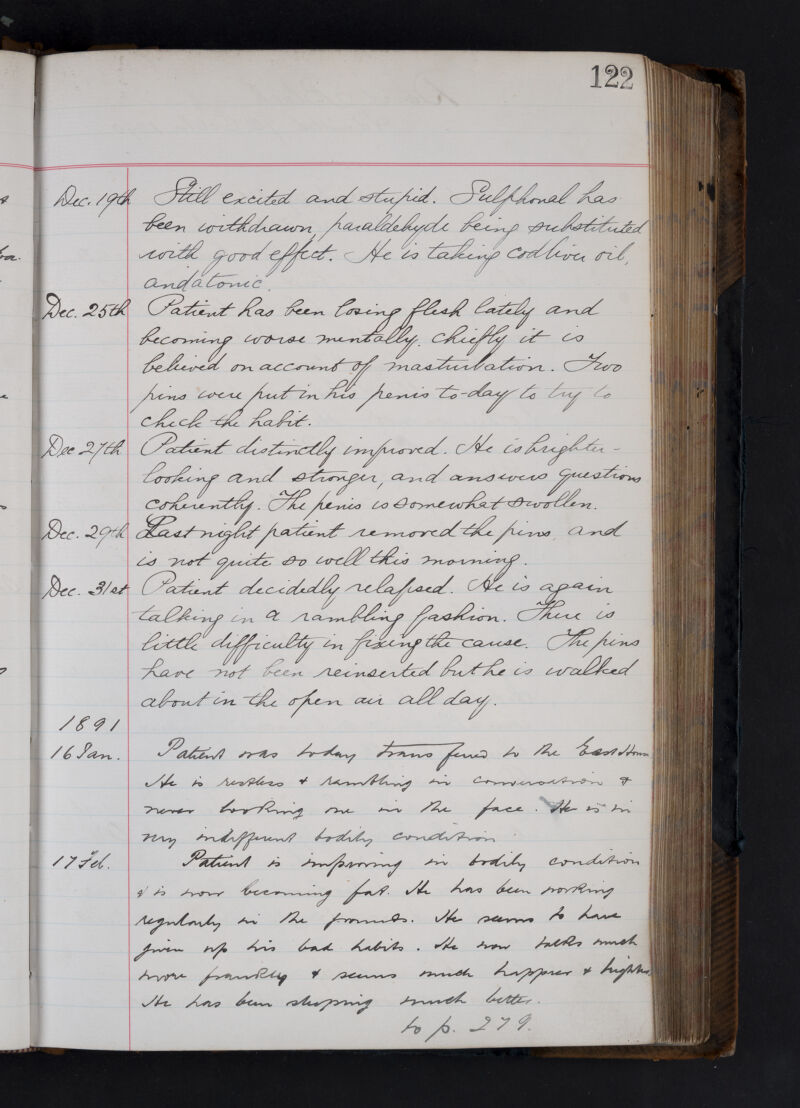 122
Dec. 19th Still excited and stupid. Sulphonal has
been withdrawn, paraldehyde being substituted
with good effect. He is taking codliver oil,
and a tonic.
Dec. 25th Patient has been losing flesh lately and
becoming worse mentally, chiefly it is
believed on account of masturbation. Two
pins were put in his penis to-day to try to
check the habit.
Dec 27th Patient distinctly improved. He is brighter-
looking and stronger, and answers questions
coherently. The penis is somewhat swollen.
Dec. 29th Last night patient removed the pins, and
is not quite so well this morning.
Dec. 31st Patient decidedly relapsed. He is again
talking in a rambling fashion. There is
little difficulty in fixing the cause. The pins
have not been reinserted but he is walked
about in the open air all day.
1891
16 Jan. Patient was today transferred to the East House
He is restless & rambling in conversation &
never looking one in the face. He is in
very indifferent bodily condition.
17 Feb. Patient is improving in bodily condition
& is now becoming fat. He has been working
regularly in the grounds. He seems to have
given up his bad habits. He now talks much
more frankly & seems much happier & brighter
He has been sleeping much better.
to p. 279.